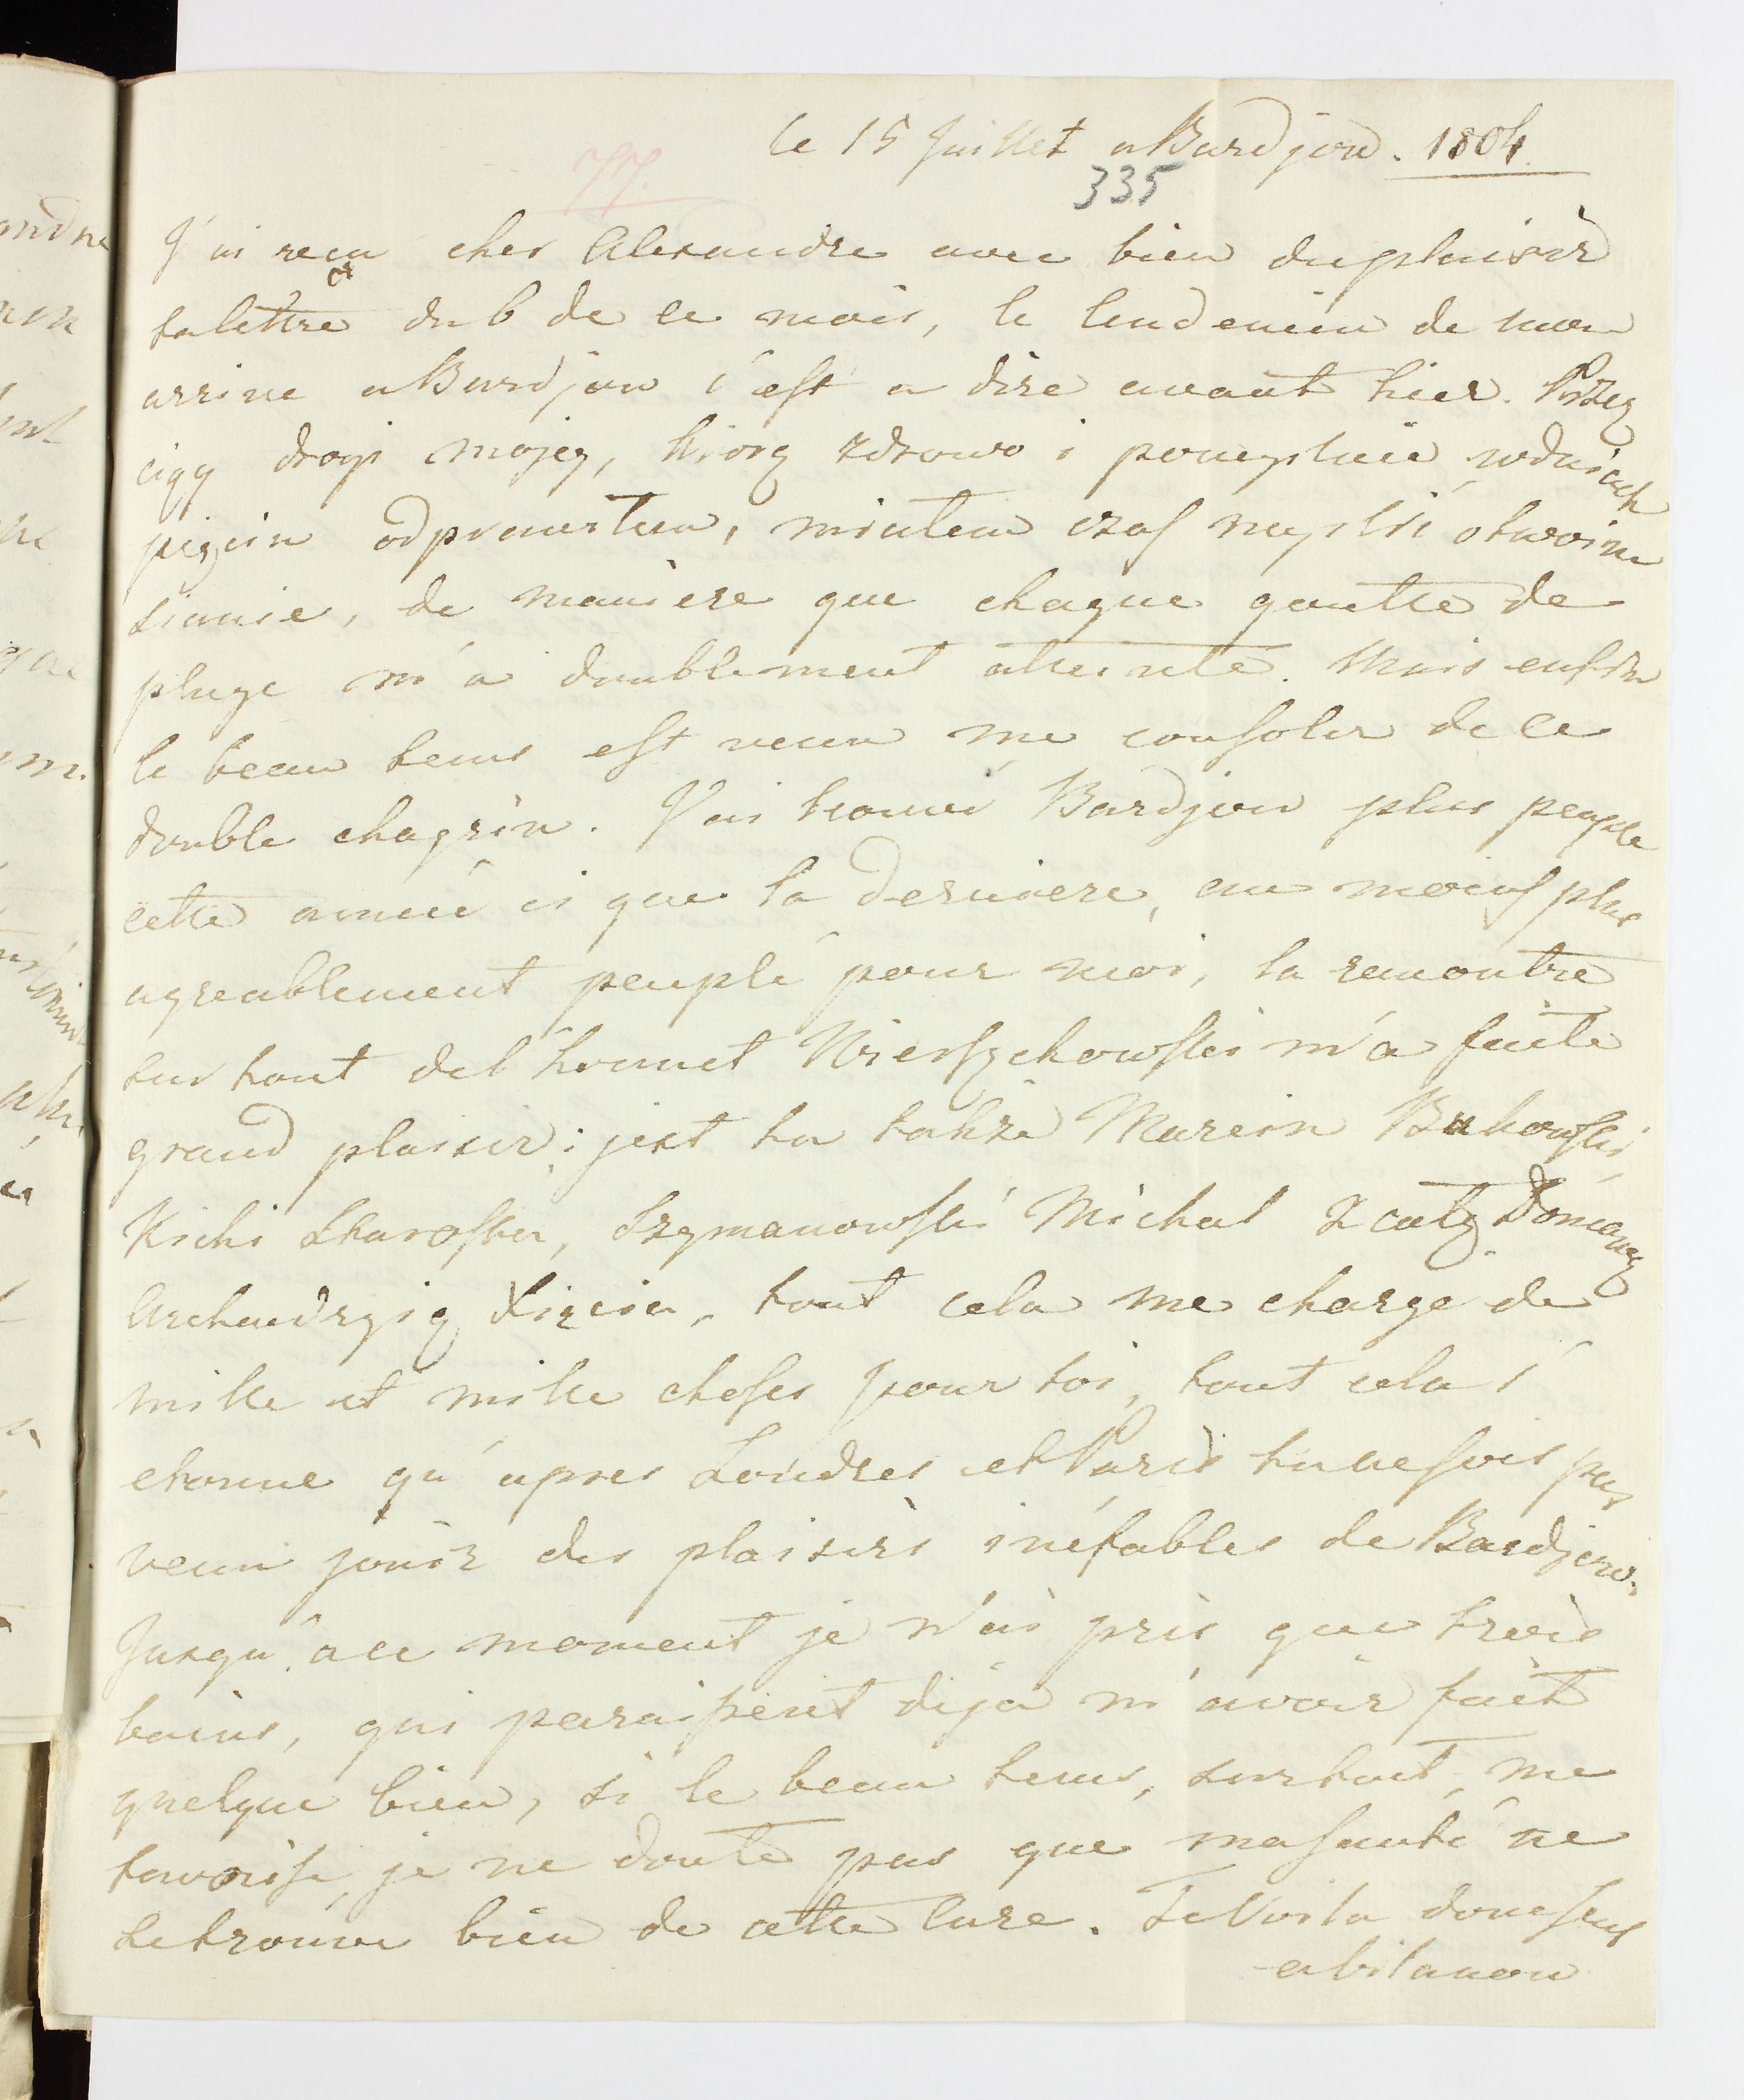 le 15 Juillet a Bardjow. 1804.
77.
335
J'ai reçu cher Alexandre avec bien du plaisir
ta lettre du 6 de ce mois, le lendemain de mon
arrive a Bardjow c'est a dire avant hier. Przez
ciąg drogi mojey, którą zdrowo i pomyslnie w dniach
pięciu odprawiłam, miałam czas mysleć o twoim
sianie, de maniere que chaque goutte de
pluye m'a doublement atteinte. Mais enfin
le beau tems est venu me consoler de ce
double chagrin. J'ai trouvé Bardjow plus peuplé
cette année ci que la derniere, au moins plus
agreablement peuplé pour moi, la rencontre
sur tout del'honnet Wierzchowski m'a faite
grand plaisir; jest tu także Marcin Bukowski
Kicki Starosta, Szymanowski Michał z całą Domową
tout cela me charge de
mille et mille choses pour toi, tout cela s'
etonne qu'apres Londres et Paris tu ne sois pas
venu jouir des plaisirs inéfables de Bardjow.
Jusqu'a ce moment je n'ai pris que trois
bains, qui paraissent déja m'avoir fait
quelque bien, si le beau tems, surtout, me
favorise, je ne doute pas que ma santé ne
se trouve bien de cette cure. Te Voila donc seul
a